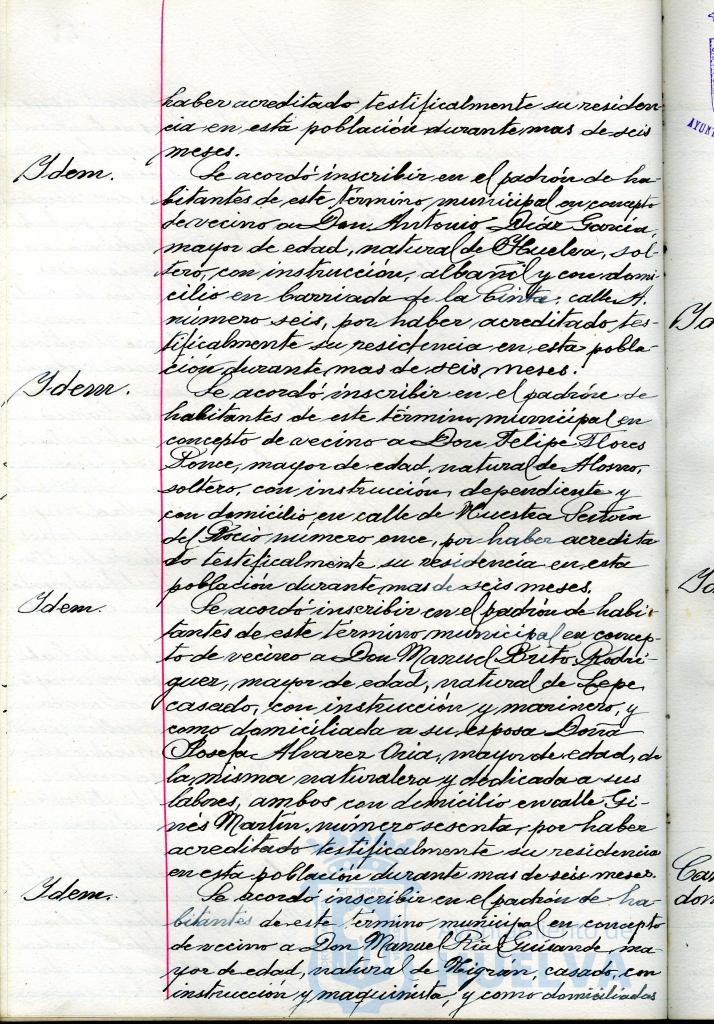 haber acreditado testificalmente su residen-
cia en esta población durante mas de seis
meses.
Idem. Se acordó inscribir en el padrón de ha-
bitantes de este término municipal en concepto
de vecino a Don Antonio Diáz García,
mayor de edad, natural de Huelva, sol-
tero, con instrucción, albañil y con domi-
cilio en barriada de la Cinta, calle A.
número seis, por haber acreditado, tes-
tificalmente su residencia en esta pobla-
ción durante mas de seis meses.
Idem. Se acordó inscribir en el padrón de
habitantes de este término municipal en
concepto de vecino a Don Felipe Flores
Ponce, mayor de edad, natural de Alosno,
soltero, con instrucción, dependiente y
con domicilio en calle de Nuestra Señora
del Rocio número once, por haber acredita
do testificalmente su residencia en esta
población durante mas de seis meses.
Idem. Se acordó inscribir en el padrón de habi-
tantes de este término municipal en concep-
to de vecino a Don Manuel Brito Rodri-
guez, mayor de edad, natural de Lepe,
casado, con instrucción y marinero, y
como domiciliada a su esposa Doña
Josefa Alvarez Oria, mayor de edad, de
la misma naturaleza y dedicada a sus
labores, ambos con domicilio en calle Gi-
nés Martín, número sesenta, por haber
acreditado testificalmente su residencia
en esta población durante mas de seis meses.
Idem. Se acordó inscribir en el padrón de ha-
bitantes de este término municipal en concepto
de vecino a Don Manuel Rial Guirande, ma-
yor de edad, natural de Nigrán, casado, con
instrucción y maquinista, y como domiciliadas
HUELVA